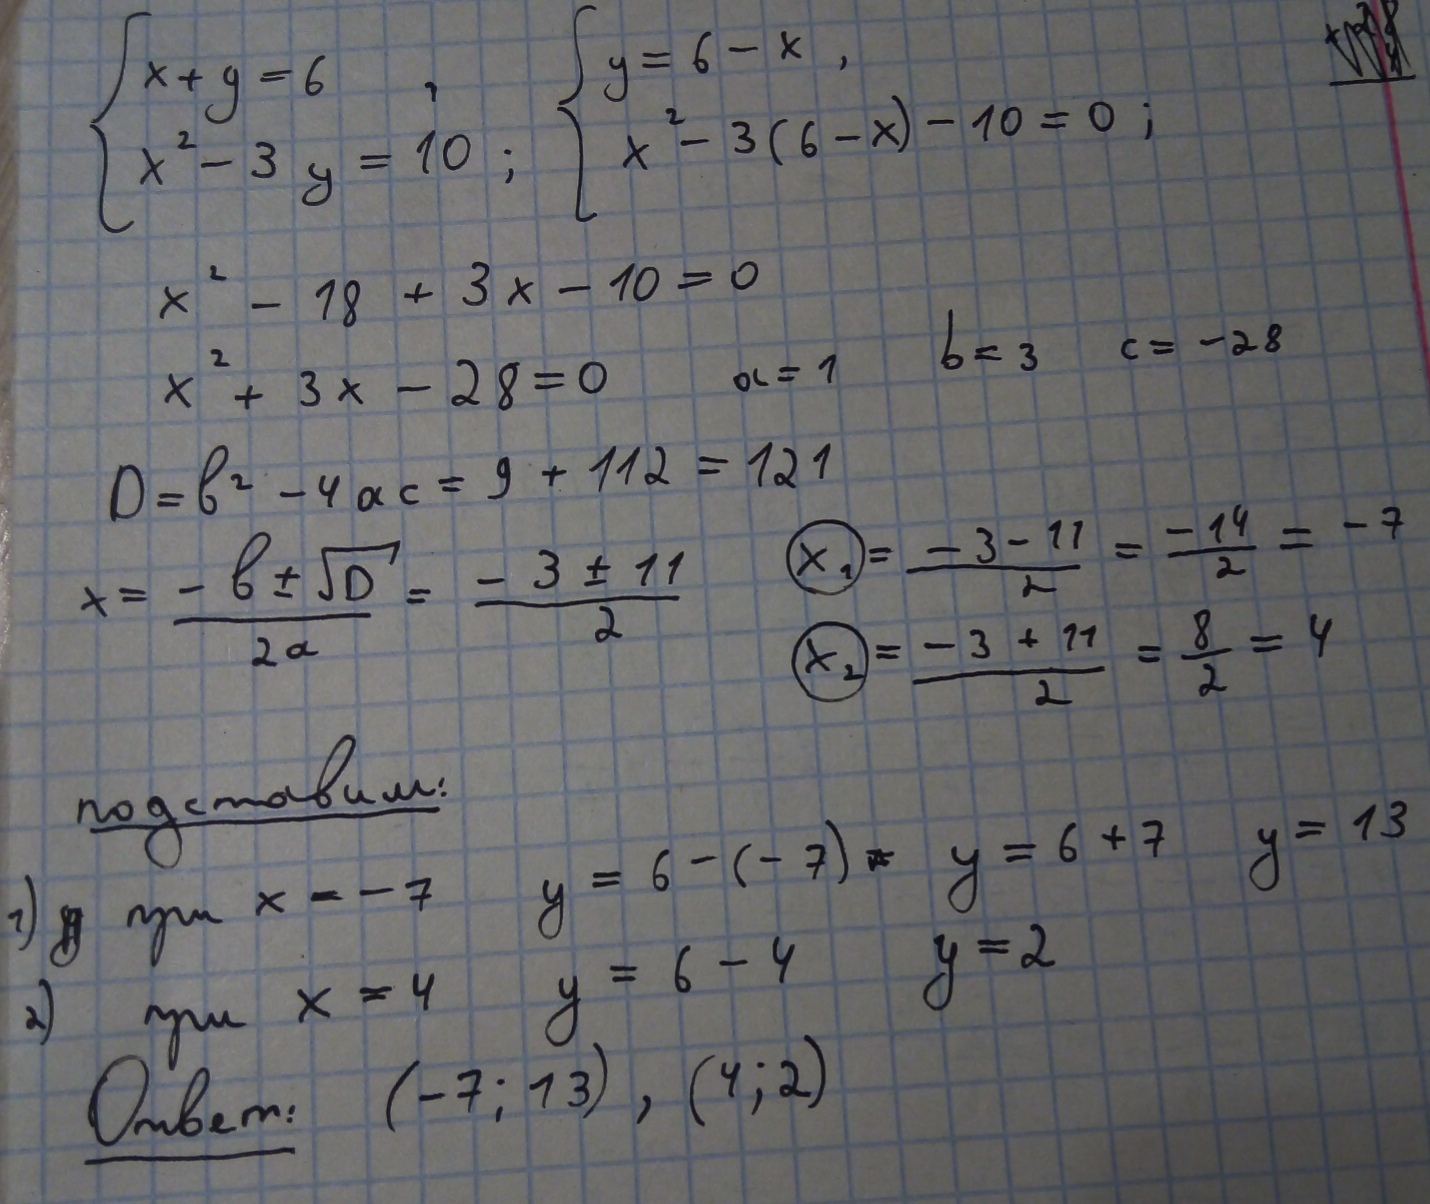 { x + y = 6 , { y = 6 - x ,
x² - 3y = 10 ; x² - 3(6 - x) - 10 = 0 ;
x² - 18 + 3x - 10 = 0
x² + 3x - 28 = 0 a = 1 b = 3 c = -28
D = b² - 4ac = 9 + 112 = 121
x = (-b ± √D)/(2a) = (-3 ± 11)/2 x₁ = (-3 - 11)/2 = -14/2 = -7
x₂ = (-3 + 11)/2 = 8/2 = 4
подставим:
1) при x = -7 y = 6 - (-7) y = 6 + 7 y = 13
2) при x = 4 y = 6 - 4 y = 2
Ответ: (-7; 13), (4; 2)